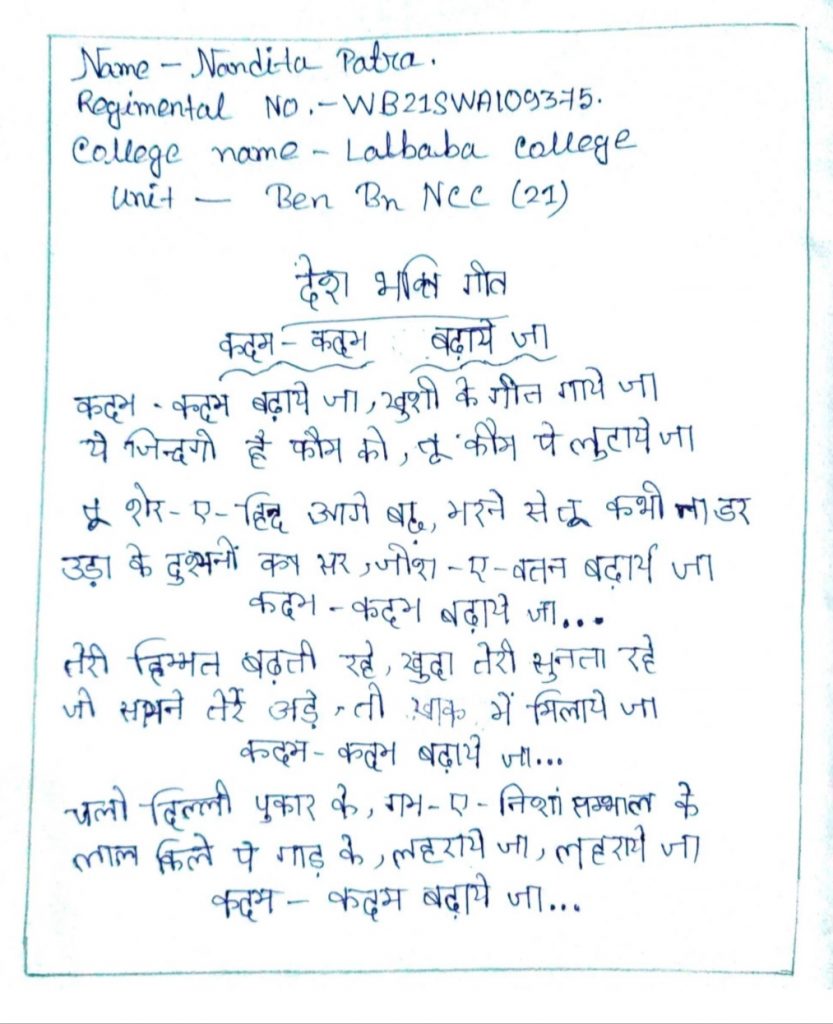 Name - Nandita Patra.
Regimental No.-WB21SWA109375.
College name - Lalbaba college
Unit - Ben Bn NCC (21)
देश भक्ति गीत
कदम - कदम बढ़ाये जा
कदम - कदम बढ़ाये जा, खुशी के गीत गाये जा
ये जिन्दगी है कौम की, तू कौम पे लुटाये जा
तू शेर-ए-हिन्द आगे बढ़, मरने से तू कभी ना डर
उड़ा के दुश्मनों का सर, जोश-ए-वतन बढ़ाये जा
कदम - कदम बढ़ाये जा...
तेरी हिम्मत बढ़ती रहे, खुदा तेरी सुनता रहे
जो सामने तेरे अड़े, तो खाक में मिलाये जा
कदम - कदम बढ़ाये जा...
चलो दिल्ली पुकार के, गम-ए-निशां सम्भाल के
लाल किले पे गाड़ के, लहराये जा, लहराये जा
कदम - कदम बढ़ाये जा...